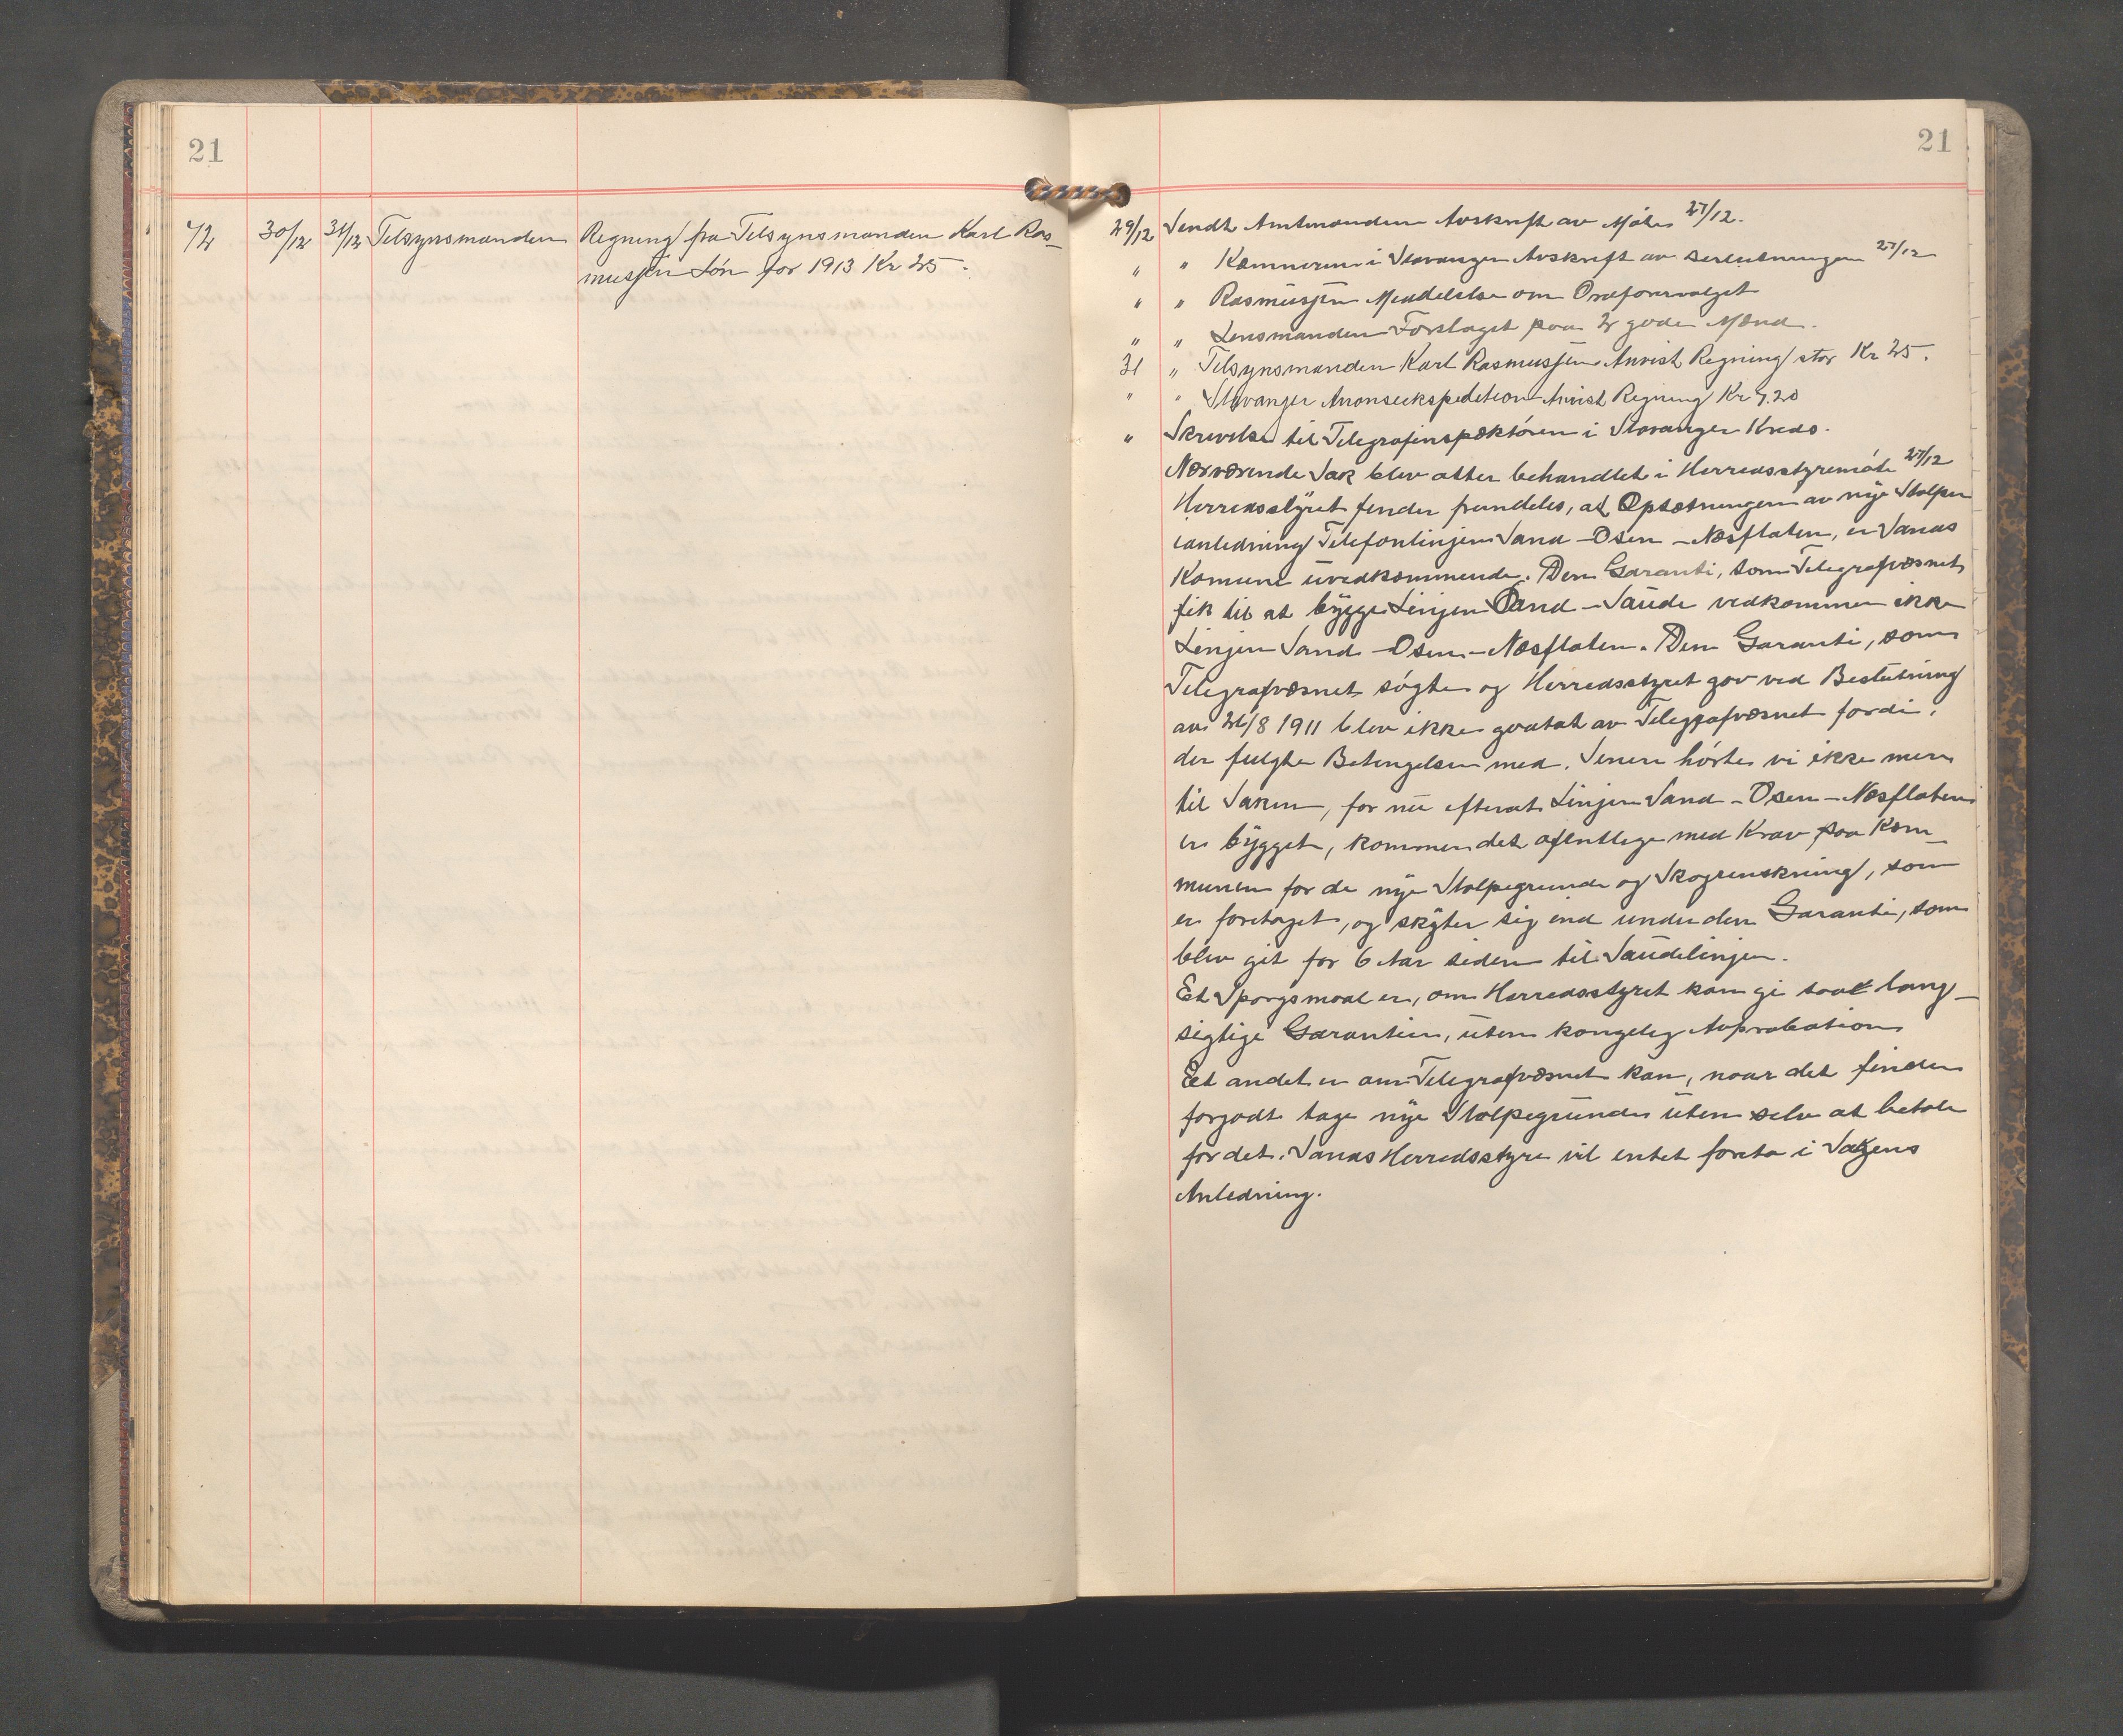 21
72 30/12 31/12 Tilsynsmanden Regning fra Tilsynsmanden Karl Ras-
musjen Lön for 1913 Kr 25.
21
29/12 Sendt Amtmanden Avskrift av Möte 27/12.
" " Kæmneren i Stavanger Avskrift av Beslutningen 27/12
" " Rasmusjen Meddelelse om
" " Lensmanden Forslaget paa 2 gode Mænd.
31 " Tilsynsmanden Karl Rasmusjen Anvist Regning stor Kr 25.
" " Stavanger Anonseekspedition Anvist Regning Kr 7.20
" Skrivelse til Telegrafinspektören i Stavanger Kreds.
Nærværende Sak blev atter behandlet i Herredsstyremöte 27/12
Herredsstyret finder fremdeles, at Opsætningen av nye Stolper
ianledning Telefonlinjen Sand - Osen - Næsflaten, er Sands
Komune uvedkommende. Den Garanti, som Telegrafvæsnet
fik til at bygge Linjen Sand - Saude vedkommer ikke
Linjen Sand - Osen - Næsflaten. Den Garanti, som
Telegrafvæsnet søgte og Herredsstyret gav ved Beslutning
av 26/8 1911 blev ikke godtat av Telegrafvæsnet fordi,
der fulgte Betingelser med. Senere hörte vi ikke mere
til Saken, for nu efterat Linjen Sand - Osen - Næsflaten
er bygget, kommer det ofentlige med Krav paa Kom-
munen for de nye Stolpegrunde og Skogrenskning, som
er foretaget, og skyter sig ind under den Garanti, som
blev git for 6 Aar siden til Saudelinjen.
Et Sporgsmaal er, om Herredsstyret kan gi saa lang-
sigtige Garantier, uten kongelig Approbation
Et andet er om Telegrafvæsnet kan, naar det finder
forgodt tage nye Stolpegrunder uten selv at betale
for det. Sands Herredsstyre vil intet foreta i Sakens
Anledning.